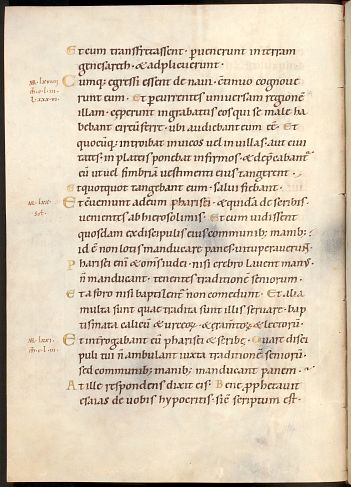 Et cum transfretassent · pervenerunt in terram
genesareth · & adplicuerunt ·
Cumq; egressi essent de navi · continuo cognove
runt eum · Et percurrentes universam regionē
illam · coeperunt in grabatis eos qui se male ha
bebant circūferre · ubi audiebant eum eē · Et
quocūq; introibat in vicos vel in villas · aut civi
tates · in plateis ponebat infirmos · & deprecabantᵉ
eū ut vel fimbriā vestimenti eius tangerent ·
Et quotquot tangebant eum · salvi fiebant ·
Et cōveniunt ad eum pharisei · & quidā de scribis ·
venientes ab hierosolimis · Et cum vidissent
quosdam ex discipulis eius communib; manib;
id ē non lotis manducare panes · vituperaverunt
Pharisei enī & om̄s iudei · nisi crebro lavent manus
n̄ manducant · tenentes traditionē seniorum ·
Et a foro nisi baptizentᵉ non comedunt · Et alia
multa sunt quae tradita sunt illis servare · bap
tismata calicū & urceoꝝ · & eramtoꝝ & lectorū ·
Et interrogabant eū pharisei & scribe · Quare disci
puli tui n̄ ambulant iuxta traditionē seniorū
sed communib; manib; manducant panem ·
At ille respondens dixit eis · Bene prophetavit
esaias de vobis hypocritis · sicut scriptum est ·